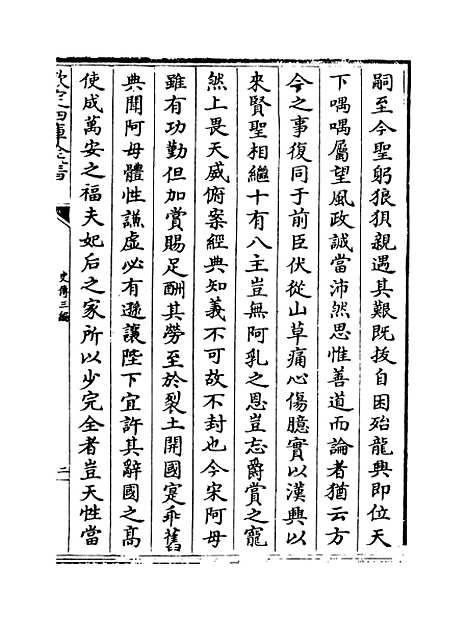 嗣至今聖躬狼狽親遇其艱既拔自困殆龍興即位天
下喁喁屬望風政誠當沛然思惟善道而論者猶云方
今之事復同于前臣伏從山草痛心傷臆實以漢興以
來賢聖相繼十有八主豈無阿乳之恩豈忘爵賞之寵
然上畏天威俯案經典知義不可故不封也今宋阿母
雖有功勤但加賞賜足酬其勞至於裂土開國寔乖舊
典聞阿母體性謙虛必有遜讓陛下宜許其辭國之高
使成萬安之福夫妃后之家所以少完全者豈天性當
欽定四庫全書
史傳三編
二